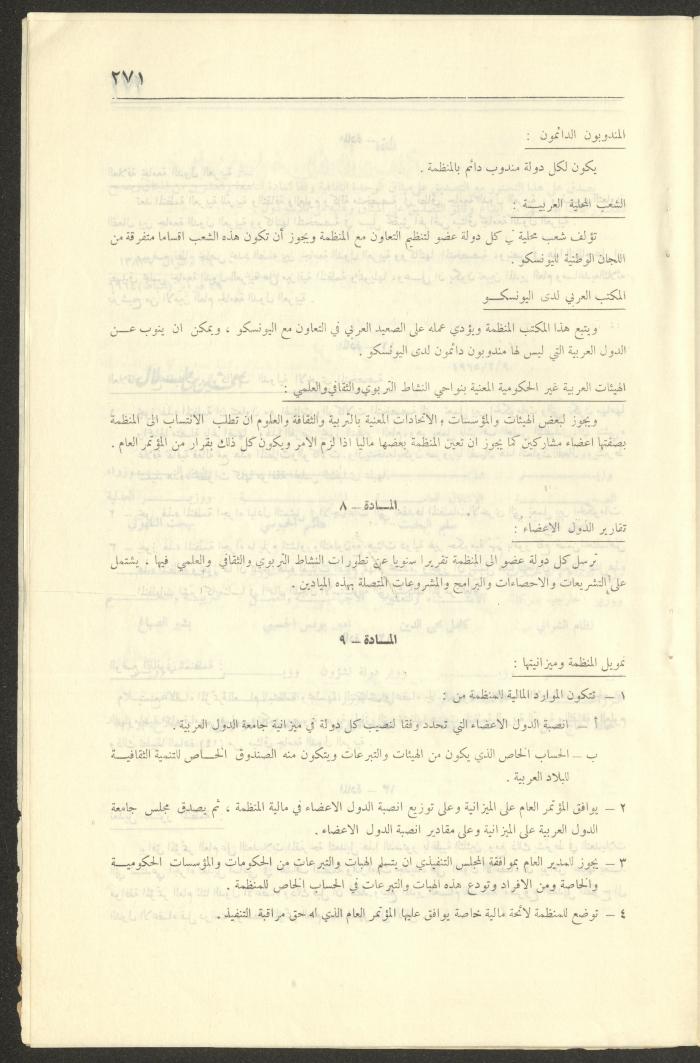 ٢٧١
المندوبون الدائمون :
يكون لكل دولة مندوب دائم بالمنظمة .
الشعب المحلية العربيــة :
تؤلف شعب محلية في كل دولة عضو لتنظيم التعاون مع المنظمة ويجوز أن تكون هذه الشعب اقساما متفرقة من
اللجان الوطنية لليونسكو .
المكتب العربي لدى اليونسكــو
ويتبع هذا المكتب المنظمة ويؤدي عمله على الصعيد العربي في التعاون مع اليونسكو ، ويمكن ان ينوب عــن
الدول العربية التي ليس لها مندوبون دائمون لدى اليونسكو .
الهيئات العربية غير الحكومية المعنية بنواحي النشاط التربوي والثقافي والعلمي :
ويجوز لبعض الهيئات والمؤسسات والاتحادات المعنية بالتربية والثقافة والعلوم ان تطلب الانتساب الى المنظمة
بصفتها اعضاء مشاركين كما يجوز ان تعين المنظمة بعضها ماليا اذا لزم الامر ويكون كل ذلك بقرار من المؤتمر العام .
المــادة – ٨
تقارير الدول الاعضاء :
ترسل كل دولة عضو الى المنظمة تقريرا سنويا عن تطورات النشاط التربوي والثقافي والعلمي فيها ، يشتمل
على التشريعات والاحصاءات والبرامج والمشروعات المتصلة بهذه الميادين .
المــادة – ٩
تمويل المنظمة وميزانيتها :
١ – تتكون الموارد المالية للمنظمة من :
أ – انصبة الدول الاعضاء التي تحدد وفقا لنصيب كل دولة في ميزانية جامعة الدول العربية .
ب – الحساب الخاص الذي يكون من الهيئات والتبرعات ويتكون منه الصندوق الخــاص للتنمية الثقافيــة
للبلاد العربية .
٢ – يوافق المؤتمر العام على الميزانية وعلى توزيع انصبة الدول الاعضاء في مالية المنظمة ، ثم يصدق مجلس جامعة
الدول العربية على الميزانية وعلى مقادير انصبة الدول الاعضاء .
٣ – يجوز للمدير العام بموافقة المجلس التنفيذي ان يتسلم الهبات والتبرعات من الحكومات والمؤسسات الحكوميــة
والخاصة ومن الافراد وتودع هذه الهبات والتبرعات في الحساب الخاص للمنظمة .
٤ – توضع للمنظمة لائحة مالية خاصة يوافق عليها المؤتمر العام الذي له حق مراقبة التنفيذ .